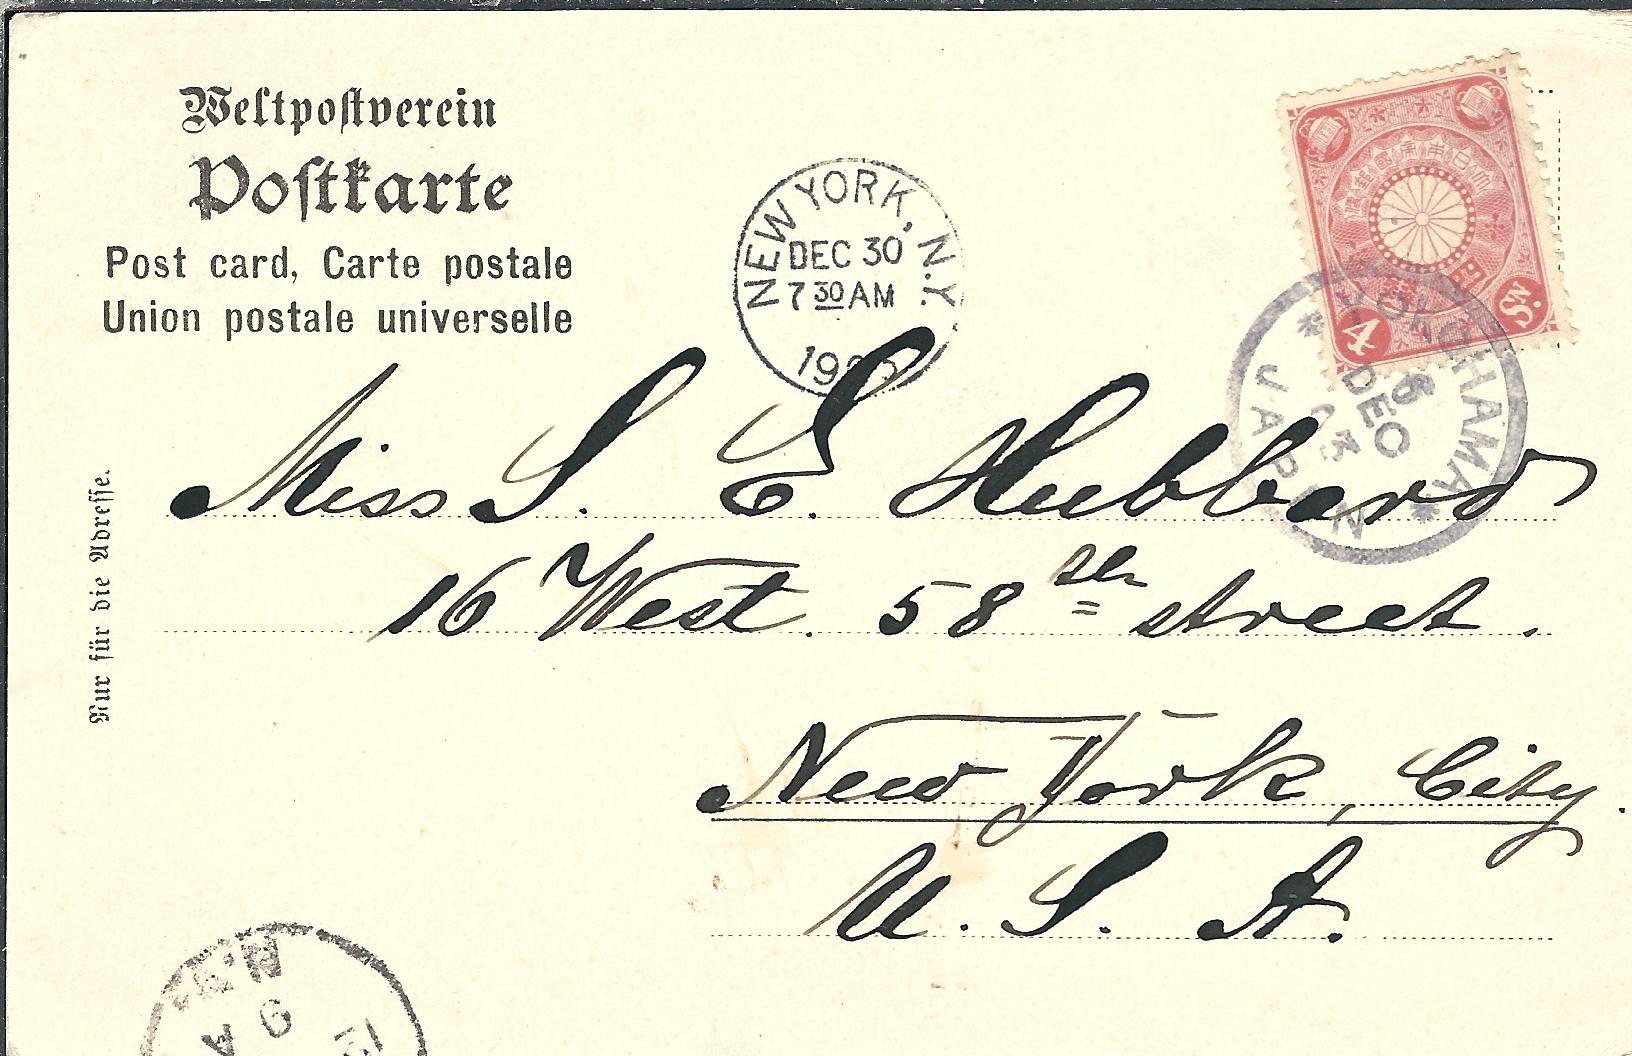 Weltpostverein
Postkarte
Post card, Carte postale
Union postale universelle
NEW YORK, N.Y.
DEC 30
7 30 AM
大日本帝國郵便
4 SN.
YOKOHAMA
DEC
JAPAN
Nur für die Adresse.
Miss S. E. Hubbard
16 West. 58th street.
New York, City.
U. S. A.